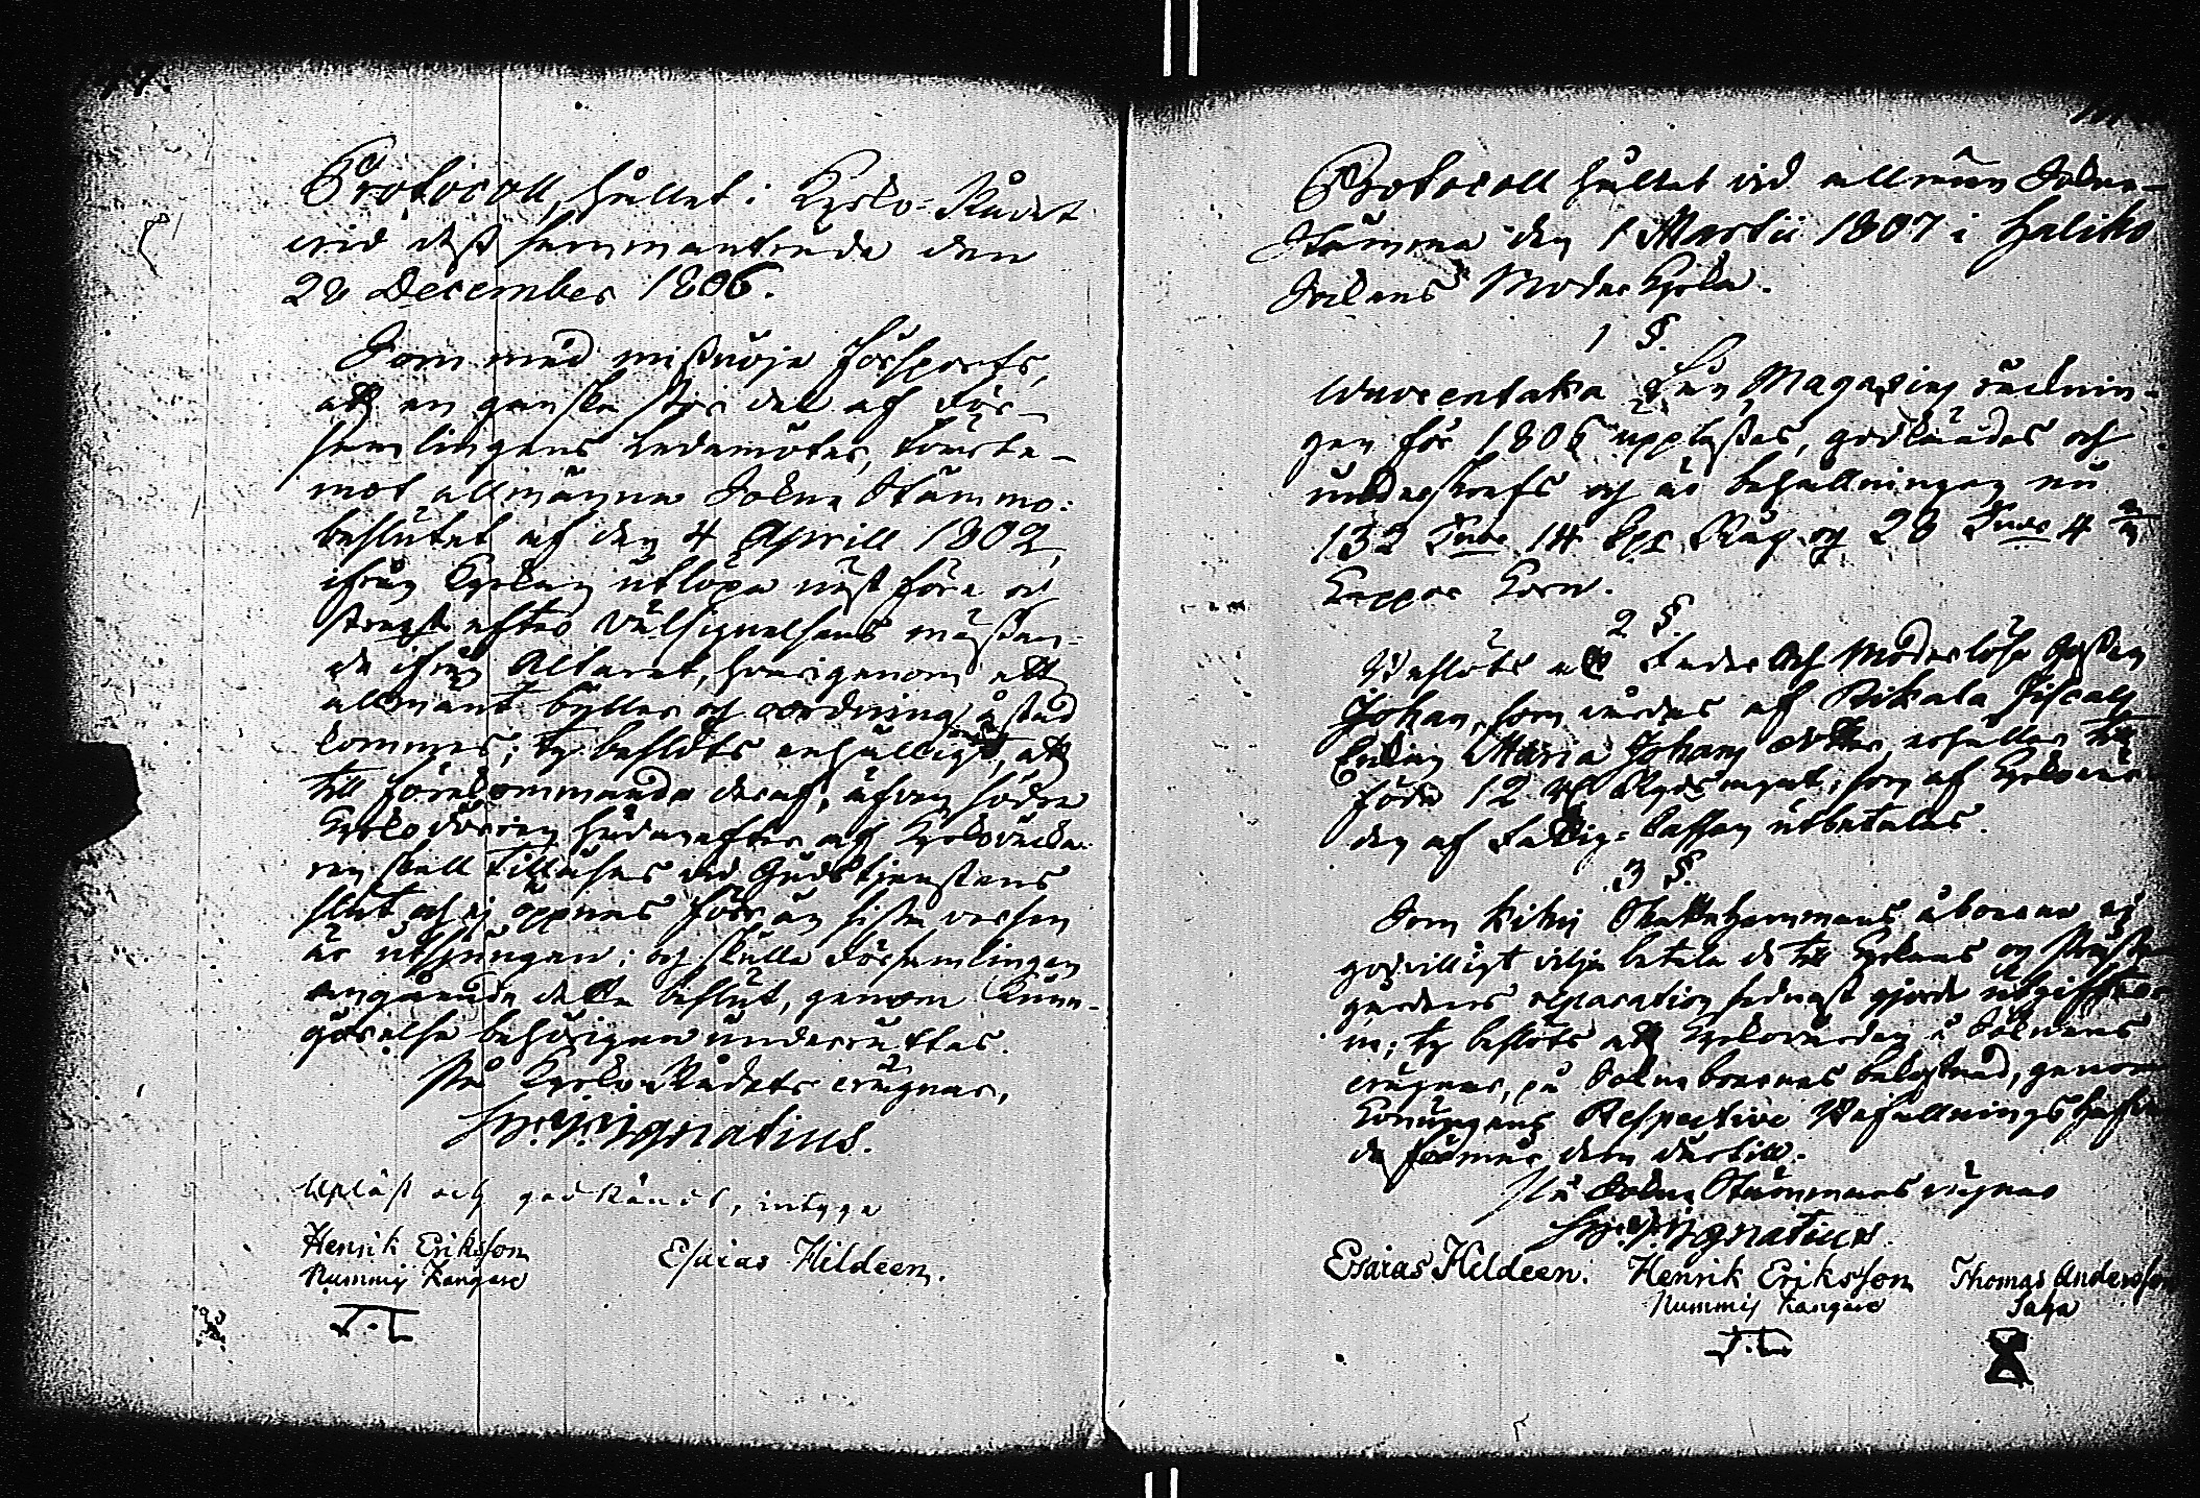 Protocoll, hållet i Kyrko-Rådet
vid dess sammanträde den
28 December 1806.
Som med missnöje försports,
att en ganska stor del af För-
samlingens Ledamöter, tvärte-
mot allmänna Sokne Stämmo-
beslutet af den 4 Aprill 1802,
ifrån Kyrkan utlöpa näst före och
straxt efter Välsignelsens mässan-
de ifrån Altaret, hvarigenom ett
allmänt buller och oordning åstad
kommes; ty beslöts enhälligt, att
till förekommande deraf, äfven södra
Kyrkodörren hädanefter af Kyrkovakta-
ren skall tillåsas vid Gudstjenstens
slut och ej öppnas förr än sista versen
är utsjungen; och skulle Församlingen
angående detta beslut, genom Kun-
görelse behörigen underrättas.
På Kyrko-Rådets vägnar,
Ignatius.
Upläst och godkändt, intyga
Henrik Eriksson Esaias Hildeen.
Nummij Kangare
Protocoll hållet vid allmän Sokne-
Stämma den 1 Martii 1807 i Haliko
Sokens Moder Kyrka.
1 §.
Wuorentaka Låne Magazins räknin-
gen för 1806 upplästes, godkändes och
underskrefs och är behållningen nu
132 Tunr 14 kpr Råg och 28 Tunr 4
Kappar Korn.
2 §.
Beslöts att Fader och Moderlösa Gossen
Johan, som vårdas af Rikala Fiscals
Enkan Maria Johans dotter erhåller till
föda 12 Rd Rgds mynt, som af Kyrkovär-
den af Fattig-Cassan utbetalas.
3 §.
Som Kihis Skattehemmans åboerne ej
godvilligt vilja betala de till Kyrkans och Prest
gårdens reparation sednast gjorde utgifter
na; ty beslöts att Kyrkovärden å Soknens
vägnar, på Sokneboernas bekostnad, genom
Konungens Respective Befallningshafvan
de förmår dem dertill.
På Sokne Stämmans vägnar
Ignatius.
Esaias Hildeen. Henrik Eriksson Thomas Andersson
Nummij Kangare Saha